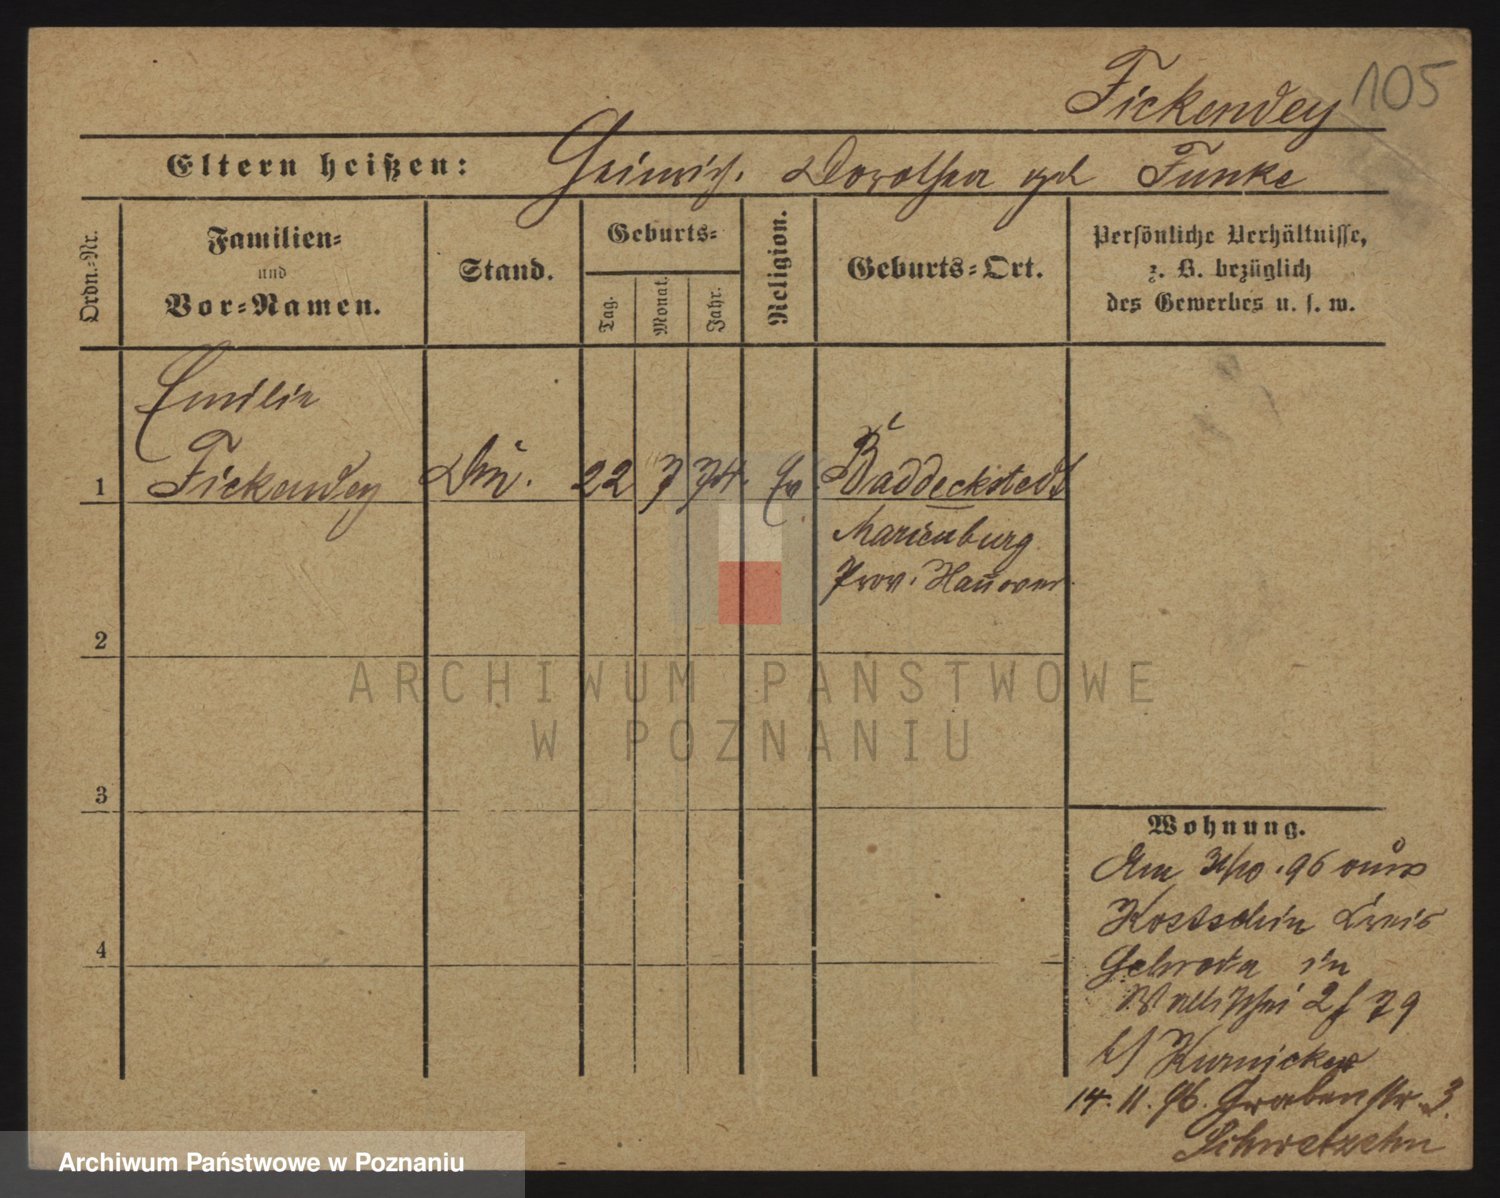 Fickendey 105
Eltern heißen: Heinrich. Dorothea geb Funke
Ordn.-Nr.
Familien-
und
Vor-Namen.
Stand.
Geburts-
Tag.
Monat.
Jahr.
Religion.
Geburts-Ort.
Persönliche Verhältnisse,
z. B. bezüglich
des Gewerbes u. s. w.
Emilie
1 Fickendey 22 7 74. Ev. Baddeckstedt
Marienburg
Prov. Hannover
2
3
4
Wohnung.
Am 31/10.96 aus
Kostschin Kreis
Schroda in
Wallischei 79
b/ Kurnicker
14.11.96. Grabenstr. 3.
Schwetzehn
ARCHIWUM PAŃSTWOWE
W POZNANIU
Archiwum Państwowe w Poznaniu